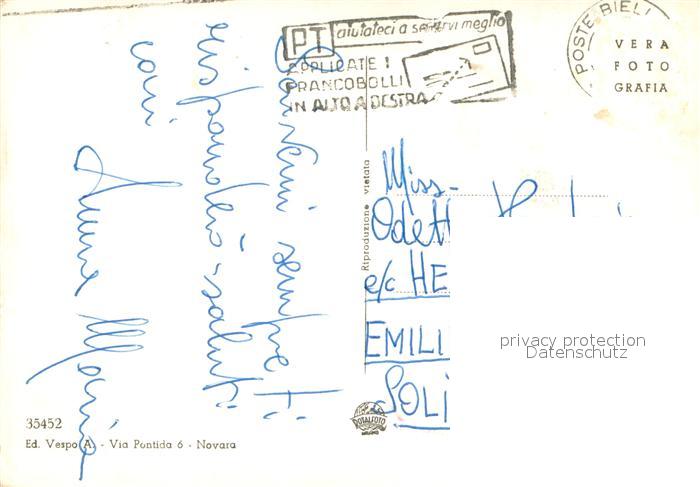 PT aiutateci a servirvi meglio
APPLICATE I
FRANCOBOLLI
IN ALTO A DESTRA
POSTE BIEL
VERA
FOTO
GRAFIA
Scrivimi sempre ti
risponderò - saluti
cari
Anna Maria
Riproduzione vietata
Miss.
Odett
c/o HE
EMILI
SOLI
privacy protection
Datenschutz
35452
Ed. Vespo A. - Via Pontida 6 - Novara